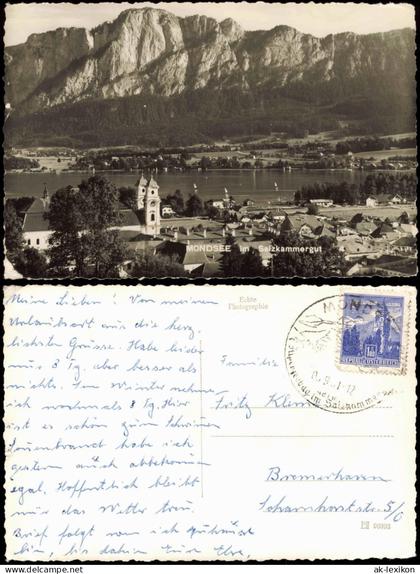 MONDSEE im Salzkammergut
Meine Lieben! Von meinem
Urlaubsort aus die herz-
lichsten Grüsse. Habe leider
nur 8 Tg. aber besser als
nichts. Im Winter nehme
ich nochmals 8 Tg. Hier
ist es schön zum Schwimmen
Sonnenbrand habe ich
gestern auch abbekommen
egal. Hoffentlich bleibt
nur das Wetter treu.
Brief folgt wenn ich zuhause
bin, bis dahin Eure Elke.
Echte
Photographie
Familie
Fritz
Bremerhaven
Scharnhorststr. 5/0
MONDSEE
im Salzkammergut
REPUBLIK ÖSTERREICH
ak-lexikon
© www.ak-lexikon.de